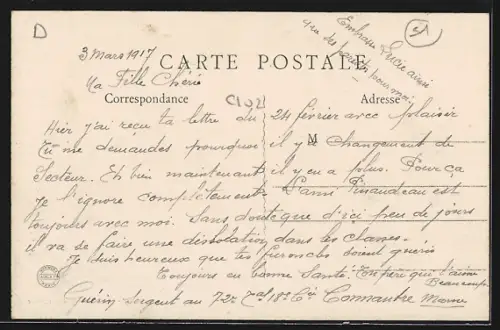 D
5
3 Mars 1917
CARTE POSTALE
Embrasse Lucie ainsi
que ses parents pour moi
Ma Fille Chérie
Correspondance
Adresse
M
Hier j'ai reçu ta lettre du 24 février avec plaisir
Tu me demandes pourquoi il y a changement de
Secteur. Et bien maintenant il y en a plus. Pour ça
Je l'ignore complètement. L'ami Pinaudeau est
toujours avec moi. Sans doute que d'ici peu de jours
il va se faire une dislocation dans les classes.
Je suis heureux que tes furoncles soient guéris
Toujours en bonne Santé. Ton père qui t'aime
Beaucoup
Guérin Sergent au 72e 18e Cie Connantre Marne